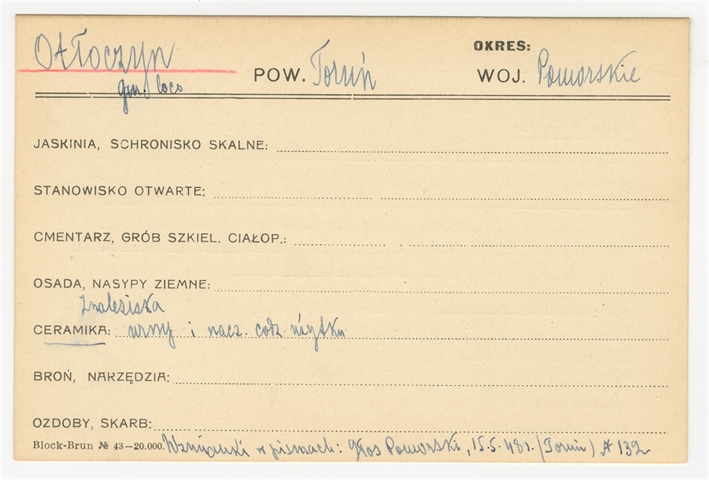 Otłoczyn
OKRES:
POW. Toruń WOJ. Pomorskie
gm. loco
JASKINIA, SCHRONISKO SKALNE:
STANOWISKO OTWARTE:
CMENTARZ, GRÓB SZKIEL. CIAŁOP.:
OSADA, NASYPY ZIEMNE:
Znaleziska
CERAMIKA: urny i nacz. codz. użytku
BROŃ, NARZĘDZIA:
OZDOBY, SKARB:
Block-Brun № 43—20.000. w pismach: Głos Pomorski, 15.5.48 r. (Toruń) A 132